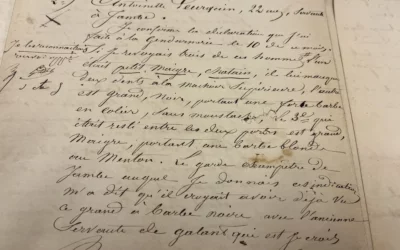 Antoinette Pourquin, 22 ans, servante
à Jambe.
Je confirme la déclaration que j'ai
faite à la gendarmerie le 10 de ce mois.
Je voyais trois de ces hommes, l'un
était petit, maigre, chatain, il lui manque
deux dents à la machoire supérieure, l'autre
est grand, noir, portant une forte barbe
en colier, sans moustaches, le 3e qui
était resté entre les deux portes est grand,
maigre, portant une barbe blonde
au menton. Le garde champêtre de
Jambe auquel je donnais ces indications
m'a dit qu'il croyait avoir déjà vu
ce grand à barbe noire avec l'ancienne
servante de galant qui est je crois